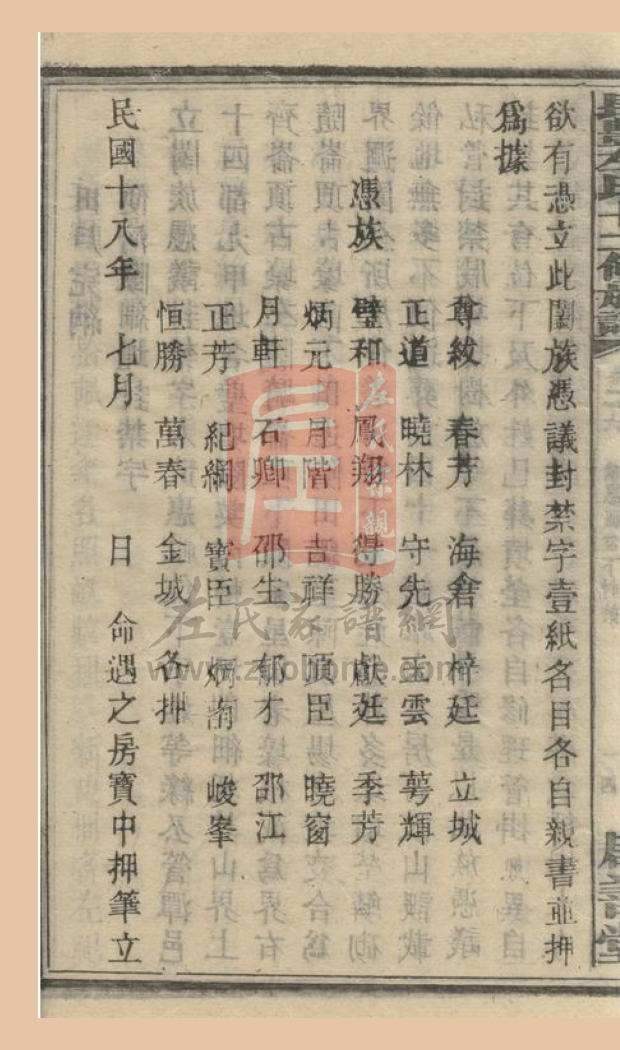 欲有憑立此闔族憑議封禁字壹紙各目各自親書並押
爲據
尊紱 春芳 海倉 梓廷 立城
憑族
正道 曉林 守先 玉雲 萼輝
璧和 鳳翔 得勝 獻廷 季芳
炳元 月階 吉祥 頂臣 曉窗
月軒 石卿 邵生 郁才 邵江
正芳 紀綱 寶臣 炳南 峻峯
恒勝 萬春 金城 各押
民國十八年 七月 日 命遇之房寶中押筆立
左氏家譜網
www.zuohome.com
左氏宗親